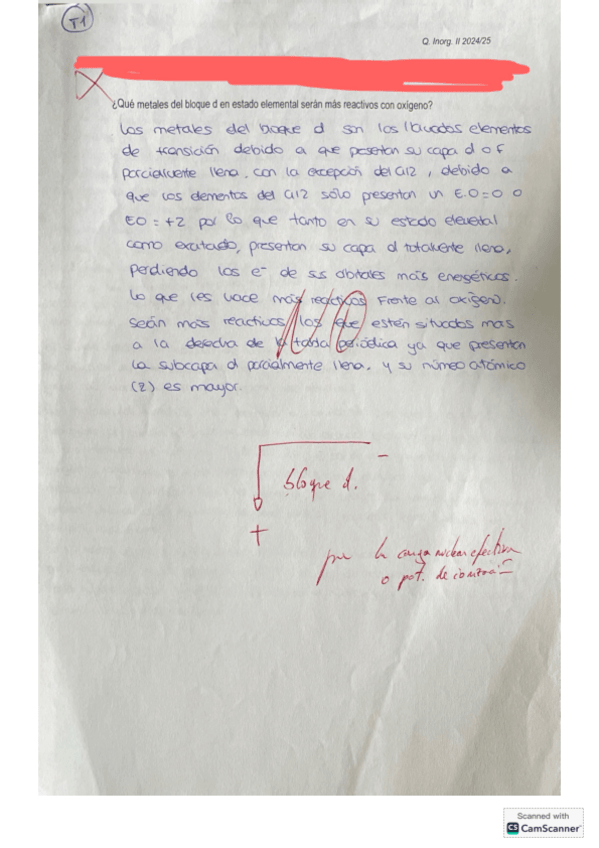 T1
Q. Inorg. II 2024/25
¿Qué metales del bloque d en estado elemental serán más reactivos con oxígeno?
Los metales del bloque d son los llamados elementos
de transición debido a que presentan su capa d o f
parcialmente llena, con la excepción del G12, debido a
que los elementos del G12 sólo presentan un E.O=0 o
EO = +2 por lo que tanto en su estado elemental
como excitado, presentan su capa d totalmente llena,
perdiendo los e⁻ de ss orbitales más energéticos.
Lo que les hace más reactivos frente al oxígeno.
Serán más reactivos los que estén situados mas
a la derecha de la tabla periódica ya que presentan
la subcapa d parcialmente llena, y su número atómico
(Z) es mayor.
NO
−
bloque d.
+
por la carga nuclear efectiva
o pot. de
Scanned with
CS CamScanner